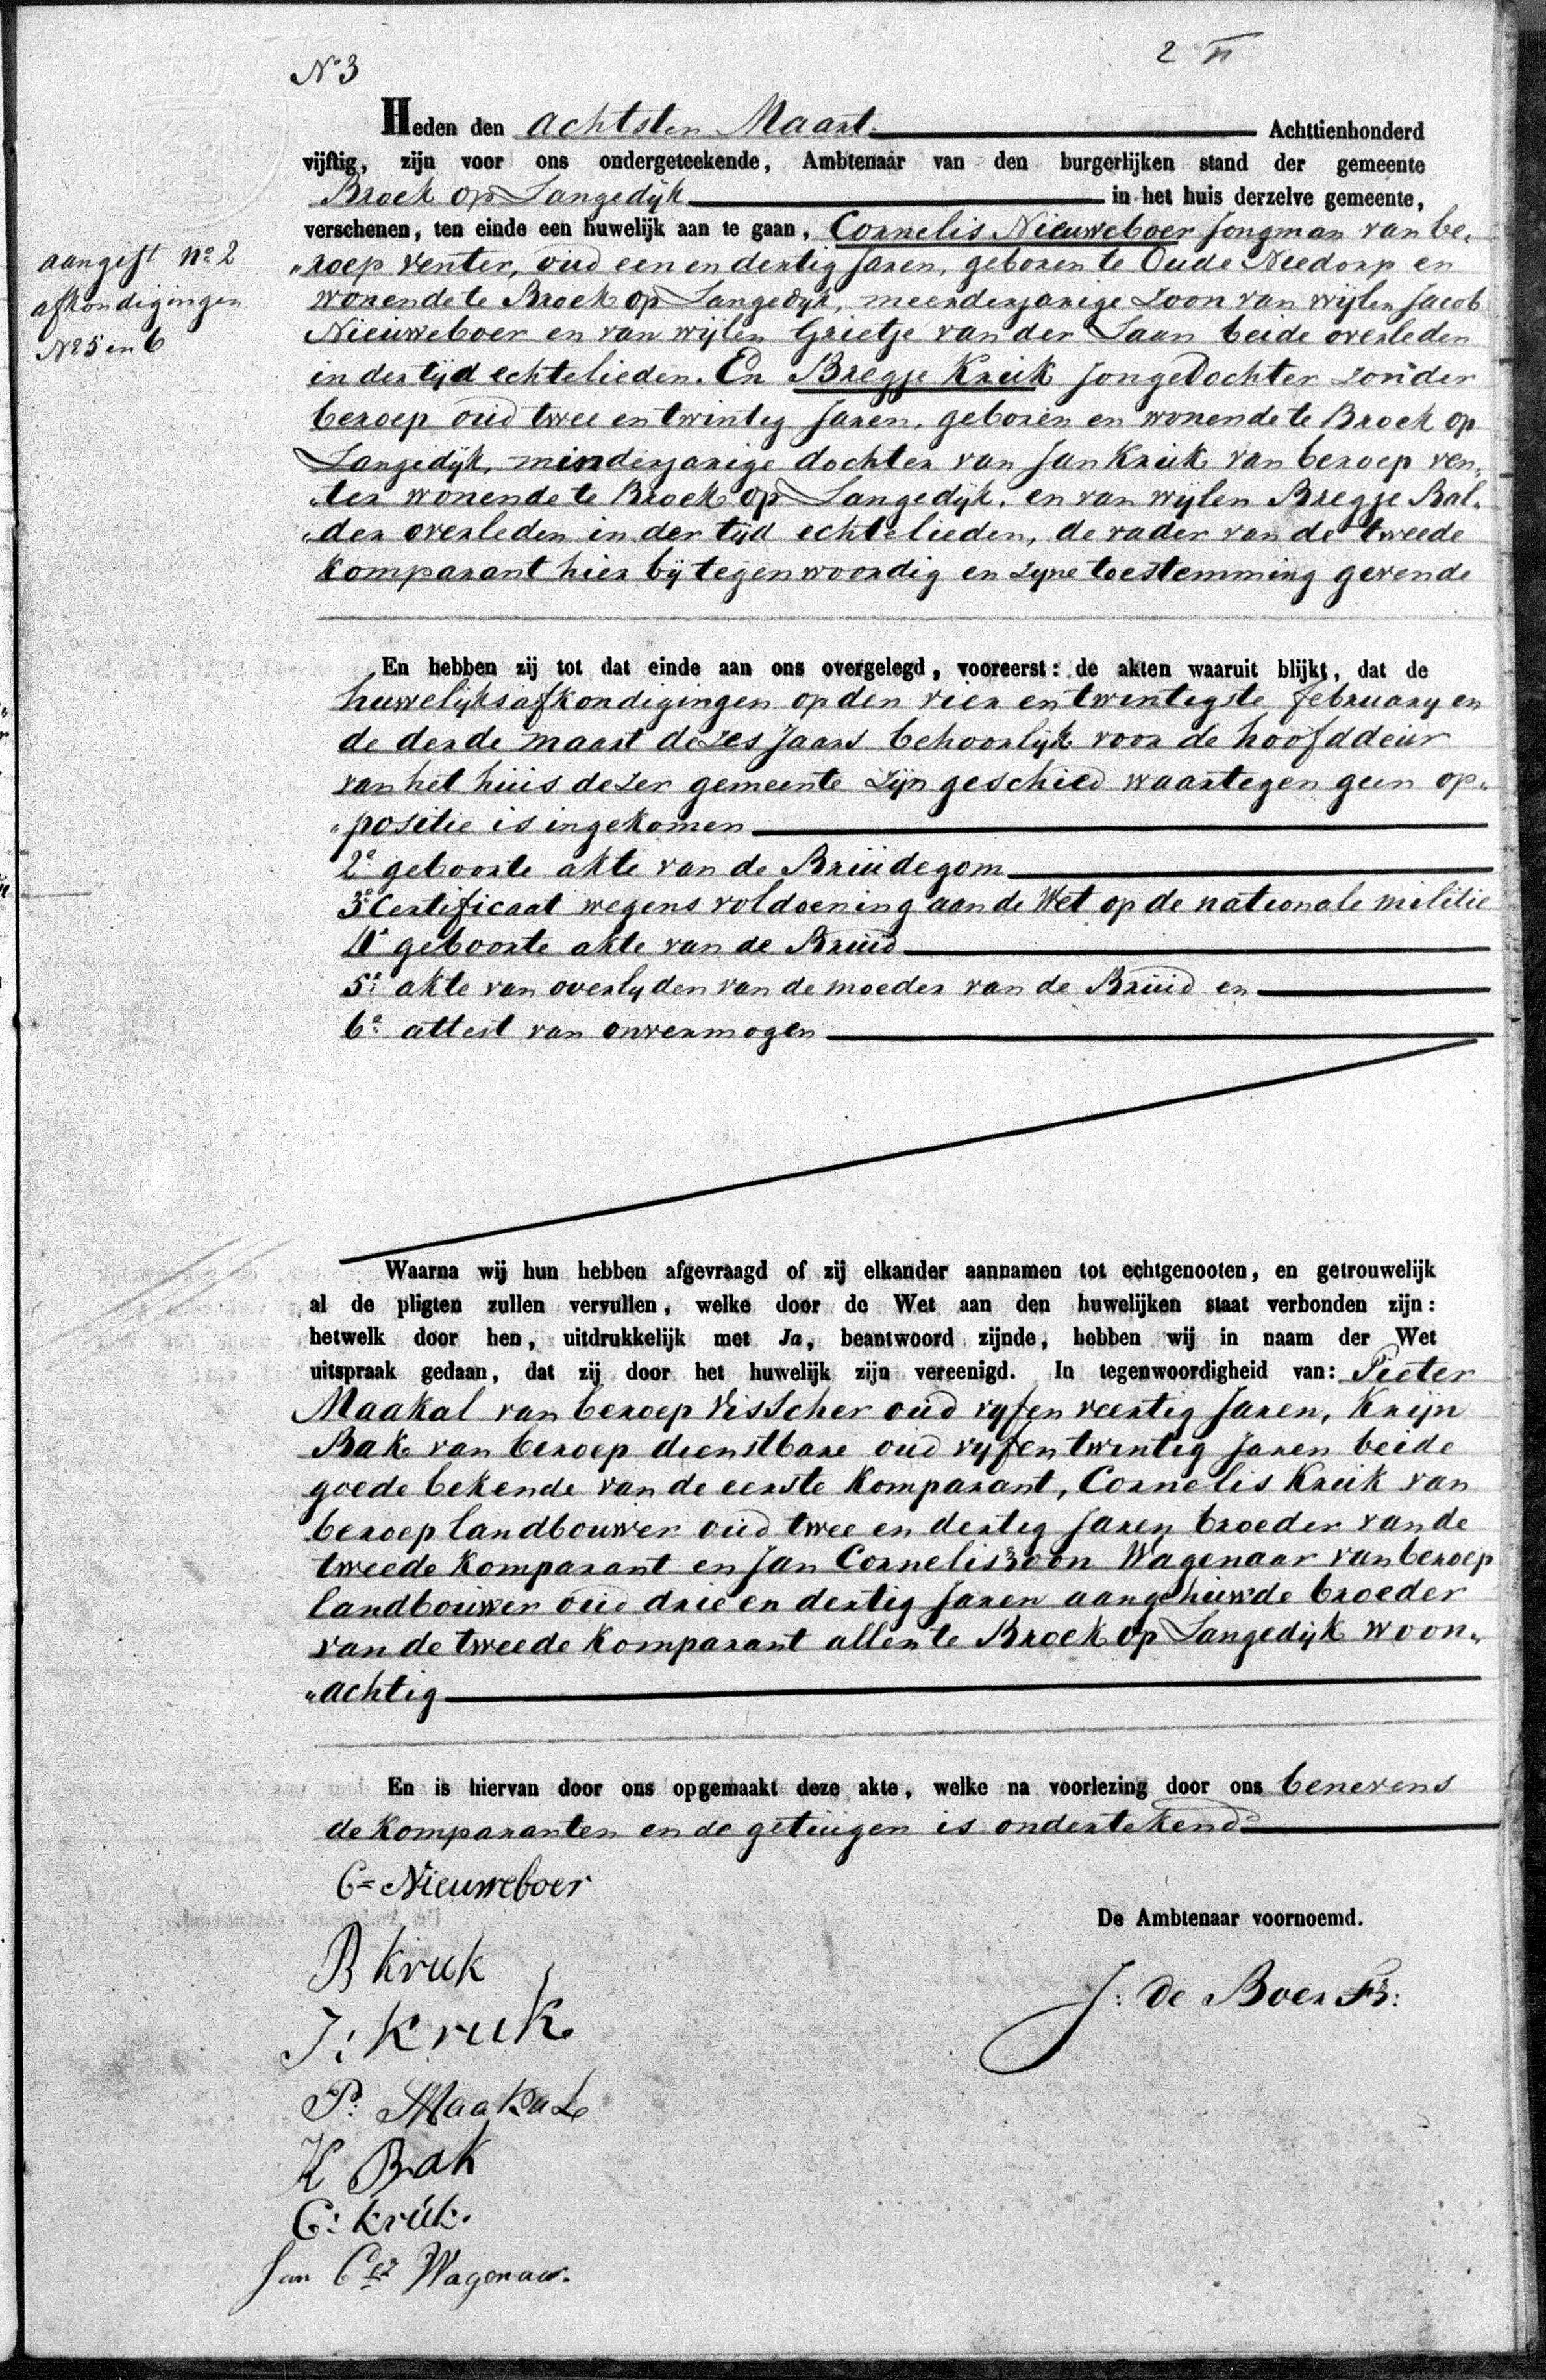 No 3
2
Heden den achtsten Maart. Achttienhonderd
vijftig, zijn voor ons ondergeteekende, Ambtenaar van den burgerlijken stand der gemeente
Broek op Langedijk in het huis derzelve gemeente,
verschenen, ten einde een huwelijk aan te gaan, Cornelis Nieuweboer Jongman van be„
„roep venter, oud een en dertig Jaren, geboren te Oude Niedorp en
wonende te Broek op Langedyk, meerderjarige Zoon van wijlen Jacob
Nieuweboer en van wijlen Grietje van der Laan beide overleden
in der tijd echtelieden. En Bregje Kruk Jongedochter zonder
beroep oud twee en twintig Jaren, geboren en wonende te Broek op
Langedijk, minderjarige dochter van Jan Kruk van beroep ven„
„ter wonende te Broek op Langedijk, en van wijlen Bregje Bal„
„der overleden in der tijd echtelieden, de vader van de tweede
komparant hier bij tegenwoordig en zyne toestemming gevende
aangift No 2
afkondigingen
No 5 en 6
En hebben zij tot dat einde aan ons overgelegd, vooreerst: de akten waaruit blijkt, dat de
huwelijksafkondigingen op den vier en twintigste february en
de derde maart dezes Jaars behoorlijk voor de hoofddeur
van het huis dezer gemeente zijn geschied waartegen geen op„
„positie is ingekomen
2e geboorte akte van de Bruidegom
3e Certificaat wegens voldoening aan de Wet op de nationale militie
4e geboorte akte van de Bruid
5e akte van overlyden van de moeder van de Bruid en
6e attest van onvermogen
Waarna wij hun hebben afgevraagd of zij elkander aannamen tot echtgenooten, en getrouwelijk
al de pligten zullen vervullen, welke door de Wet aan den huwelijken staat verbonden zijn:
hetwelk door hen, uitdrukkelijk met Ja, beantwoord zijnde, hebben wij in naam der Wet
uitspraak gedaan, dat zij door het huwelijk zijn vereenigd. In tegenwoordigheid van: Pieter
Maakal van beroep Visscher oud vyf en veertig Jaren, Krijn
Bak van beroep dienstbare oud vyf en twintig Jaren beide
goede bekende van de eerste Komparant, Cornelis Kruk van
beroep landbouwer oud twee en dertig Jaren broeder van de
tweede Komparant en Jan Corneliszoon Wagenaar van beroep
landbouwer oud drie en dertig Jaren aangehuwde broeder
van de tweede Komparant allen te Broek op Langedijk woon„
„achtig
En is hiervan door ons opgemaakt deze akte, welke na voorlezing door ons benevens
de Komparanten en de getuigen is ondertekend
Cs Nieuweboer
B Kruk
J: Kruk
P: Maakal
K Bak
C: Kruk.
Jan Csz Wagenaar.
De Ambtenaar voornoemd.
J: de Boer Fz: